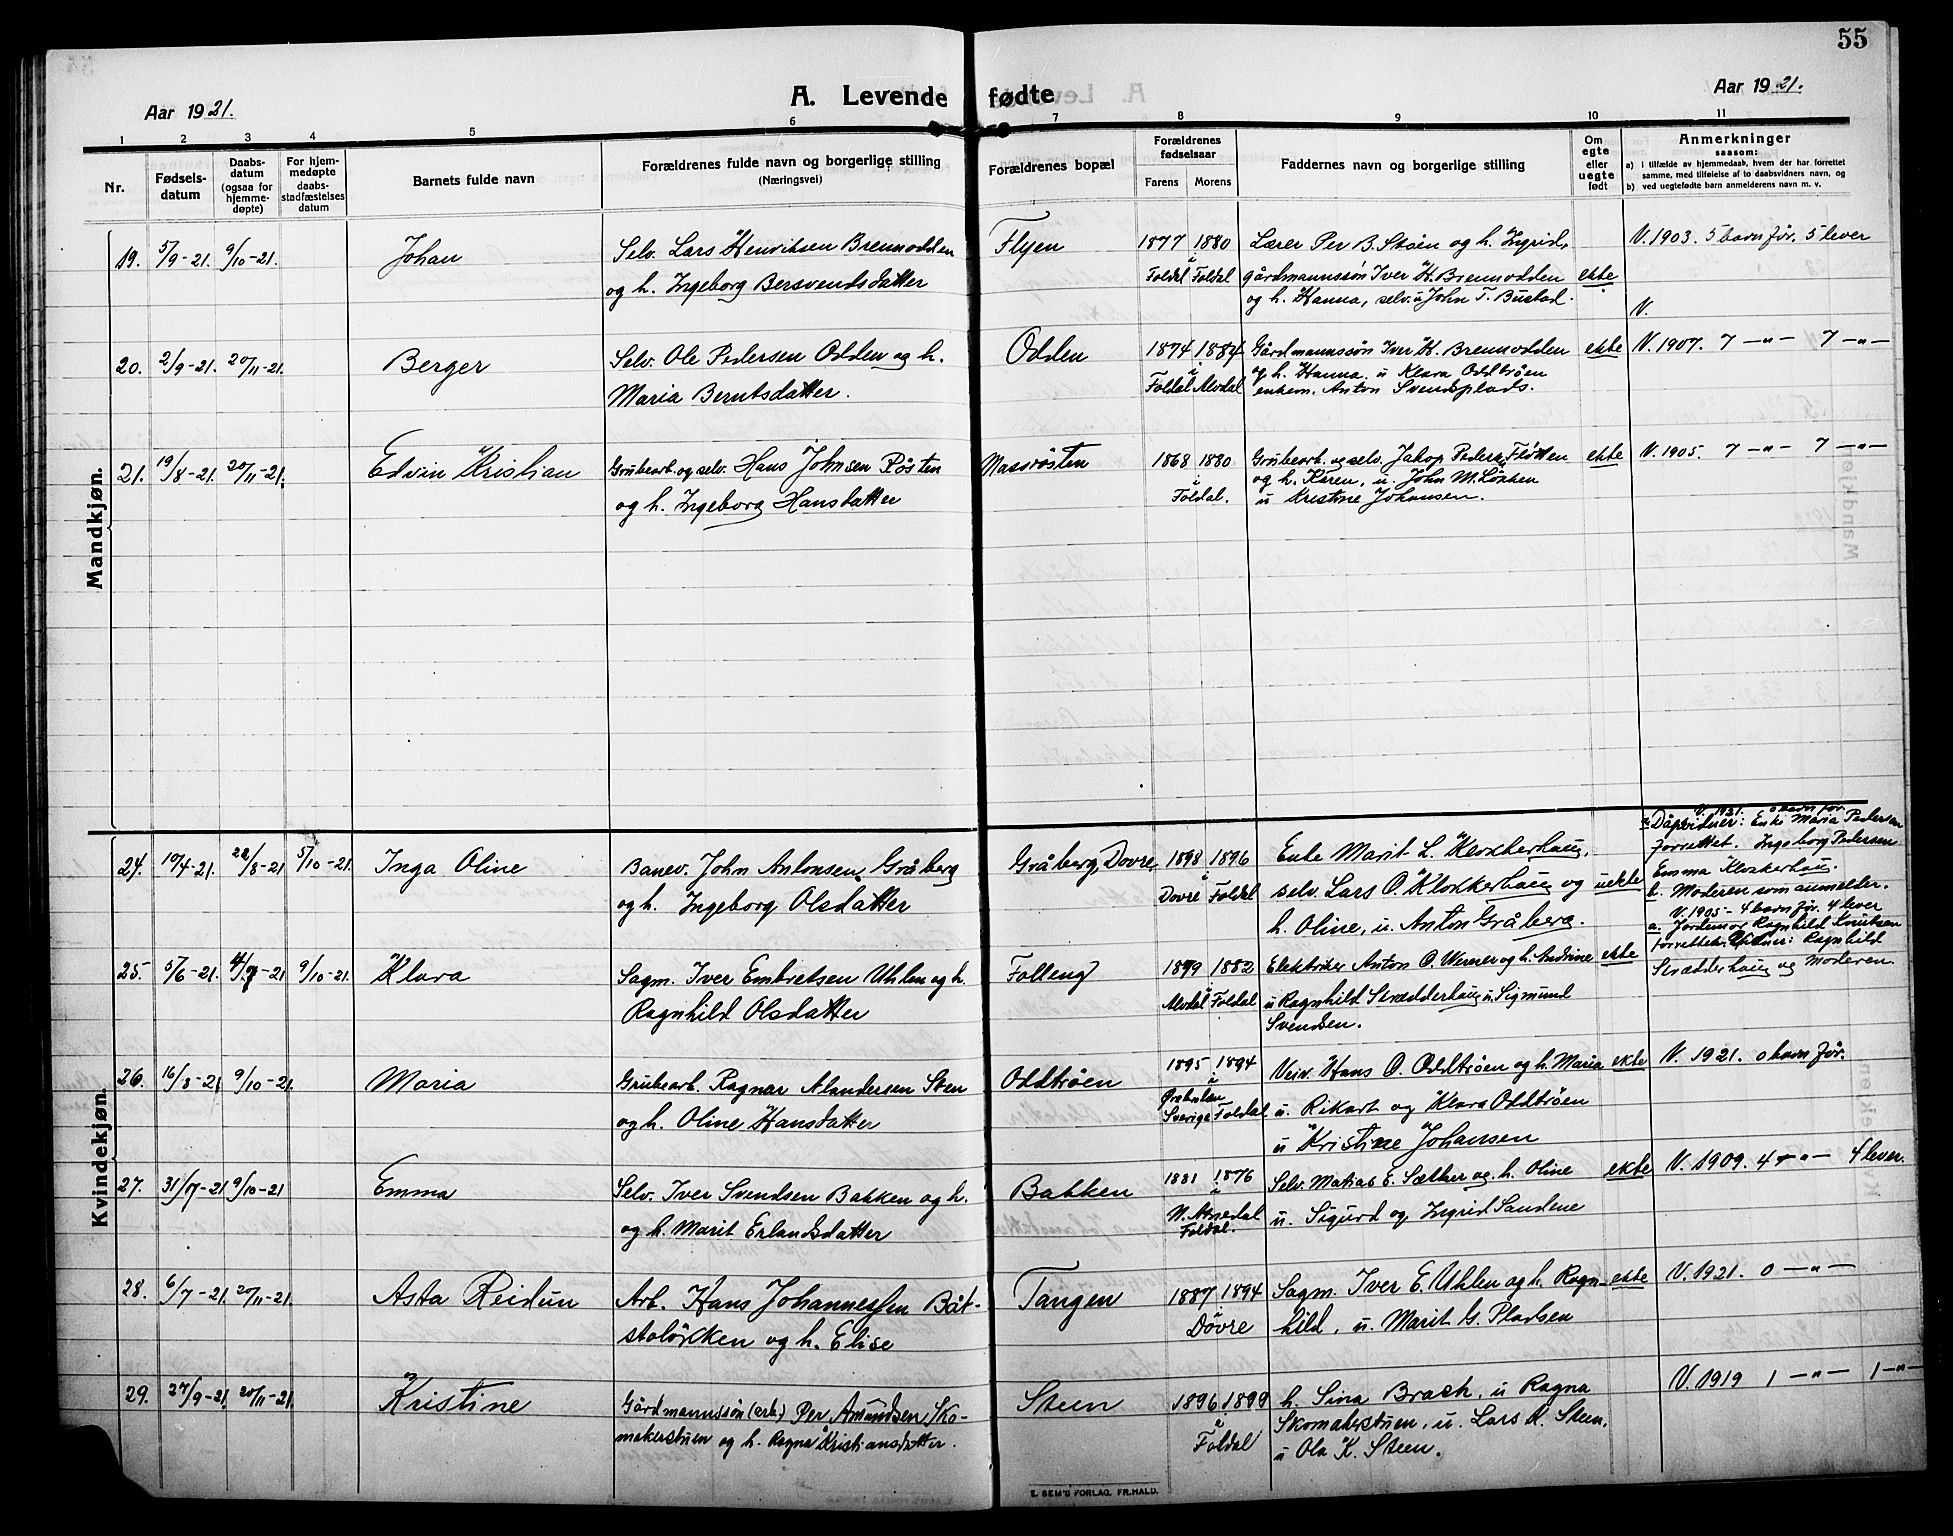 55
Aar 1921.
A. Levende fødte
Aar 1921.
1 2 3 4 5 6 7 8 9 10 11
Nr.
Fødsels-
datum
Daabs-
datum
(ogsaa for
hjemme-
døpte)
For hjem-
medøpte
daabs-
stadfæstelses
datum
Barnets fulde navn
Forældrenes fulde navn og borgerlige stilling
(Næringsvei)
Forældrenes bopæl
Forældrenes
fødselsaar
Farens Morens
Faddernes navn og borgerlige stilling
Om
egte
eller
uegte
født
Anmerkninger
saasom:
a) i tilfælde av hjemmedaab, hvem der har forrettet
samme, med tilføielse af to daabsvidners navn, og
b) ved uegtefødte barn anmelderens navn m. v.
Mandkjøn.
19. 5/9-21. 9/10-21. Johan
Selv. Lars Henriksen Brennodden
og h. Ingeborg Bersvendsdatter
Flyen
1877 1880
Foldal Foldal
Lærer Per B. Støen og h. Ingrid,
gårdmannssøn Iver H. Brennodden
og h. Hanna, selv. u John T. Bustad.
ekte
V. 1903. 5 barn før. 5 lever
V.
20. 2/9-21. 20/11-21. Berger
Selv. Ole Pedersen Odden og h.
Maria Berntsdatter.
Odden
1874 1884
Foldal Alvdal
Gårdmannssøn Iver H. Brennodden
og h. Hanna. u Klara Oddtrøen
enkem. Anton Svendsplads.
ekte
V. 1907. 7 -"- 7 -"-
21. 19/8-21. 20/11-21. Edvin Kristian
Grubearb. og selv. Hans Johnsen Røsten
og h. Ingeborg Hansdatter
Massrøsten
1868 1880
i
Foldal.
Grubearb. og selv. Jakop Peders. Fløtten
og h. Karen, u. John M. Løkken
u Kristine Johansen.
ekte
V. 1905. 7 -"- 7 -"-
Kvindekjøn.
24. 10/4-21. 22/8-21 5/10-21. Inga Oline
Banev. John Antonsen Gråberg
og h. Ingeborg Olsdatter
Gråberg, Dovre.
1898 1896
Dovre Foldal
Enke Marit L. Klokkerhaug,
selv Lars O. Klokkerhaug og
h. Oline, u. Anton Gråberg.
uekte
V. 1921. 0 barn før.
a. Dåpsvidner: Enke Maria Pedersen
forrettet. Ingeborg Pedersen
Emma Klokkerhaug.
b. Moderen som anmelder.
25. 5/6-21. 4/7-21 9/10-21. Klara
Sagm. Iver Embretsen Uhlen og h.
Ragnhild Olsdatter
Folleng
1879 1882
Alvdal Foldal
Elektriker Anton O. Werner og h. Andrine
u Ragnhild Strædderhaug u. Sigmund
Svendsen.
ekte
V. 1905 - 4 barn før. 4 lever
a. Jordemor Ragnhild Knutsen
forrettet. Vidner: Ragnhild
Strædderhaug og Moderen.
26. 16/8-21 9/10-21. Maria
Grubearb. Ragnar Alandersen Sten
og h. Oline Hansdatter
Oddtrøen
1895 1894
Sverige Foldal
Veiv. Hans O. Oddtrøen og h. Maria
u. Rikart og Klara Oddtrøen
u Kristine Johansen
ekte
V. 1921. 0 barn før.
27. 31/7-21 9/10-21 Emma
Selv. Iver Svendsen Bakken og h.
og h. Marit Erlandsdatter
Bakken
1881 1876
Foldal.
Selv. Matias E. Sætther og. h. Oline
u. Sigurd og Ingrid Sandene
ekte
V. 1909. 4 -"- 4 lever.
28. 6/7-21. 20/11-21. Asta Reidun
Arb. Hans Johannessen Båt-
stoløkken og h. Elise
Tangen
1887 1894
i
Dovre
Sagm. Iver E. Uhlen og h. Ragn-
hild, u. Marit G. Pladsen
ekte
V. 1921. 0 -"-
29. 27/9-21. 20/11-21. Kristine
Gårdmannssøn (arb.) Per Amundsen Sko-
makerstuen og h. Ragna Kristiansdatter.
Steen
1896 1899
i
Foldal
h. Siva Brask, u Ragna
Skomakerstuen, u. Lars K. Steen,
u Ola K. Steen.
V. 1919 1 -"- 1 -"-
E. SEM'S FORLAG, FR.HALD.